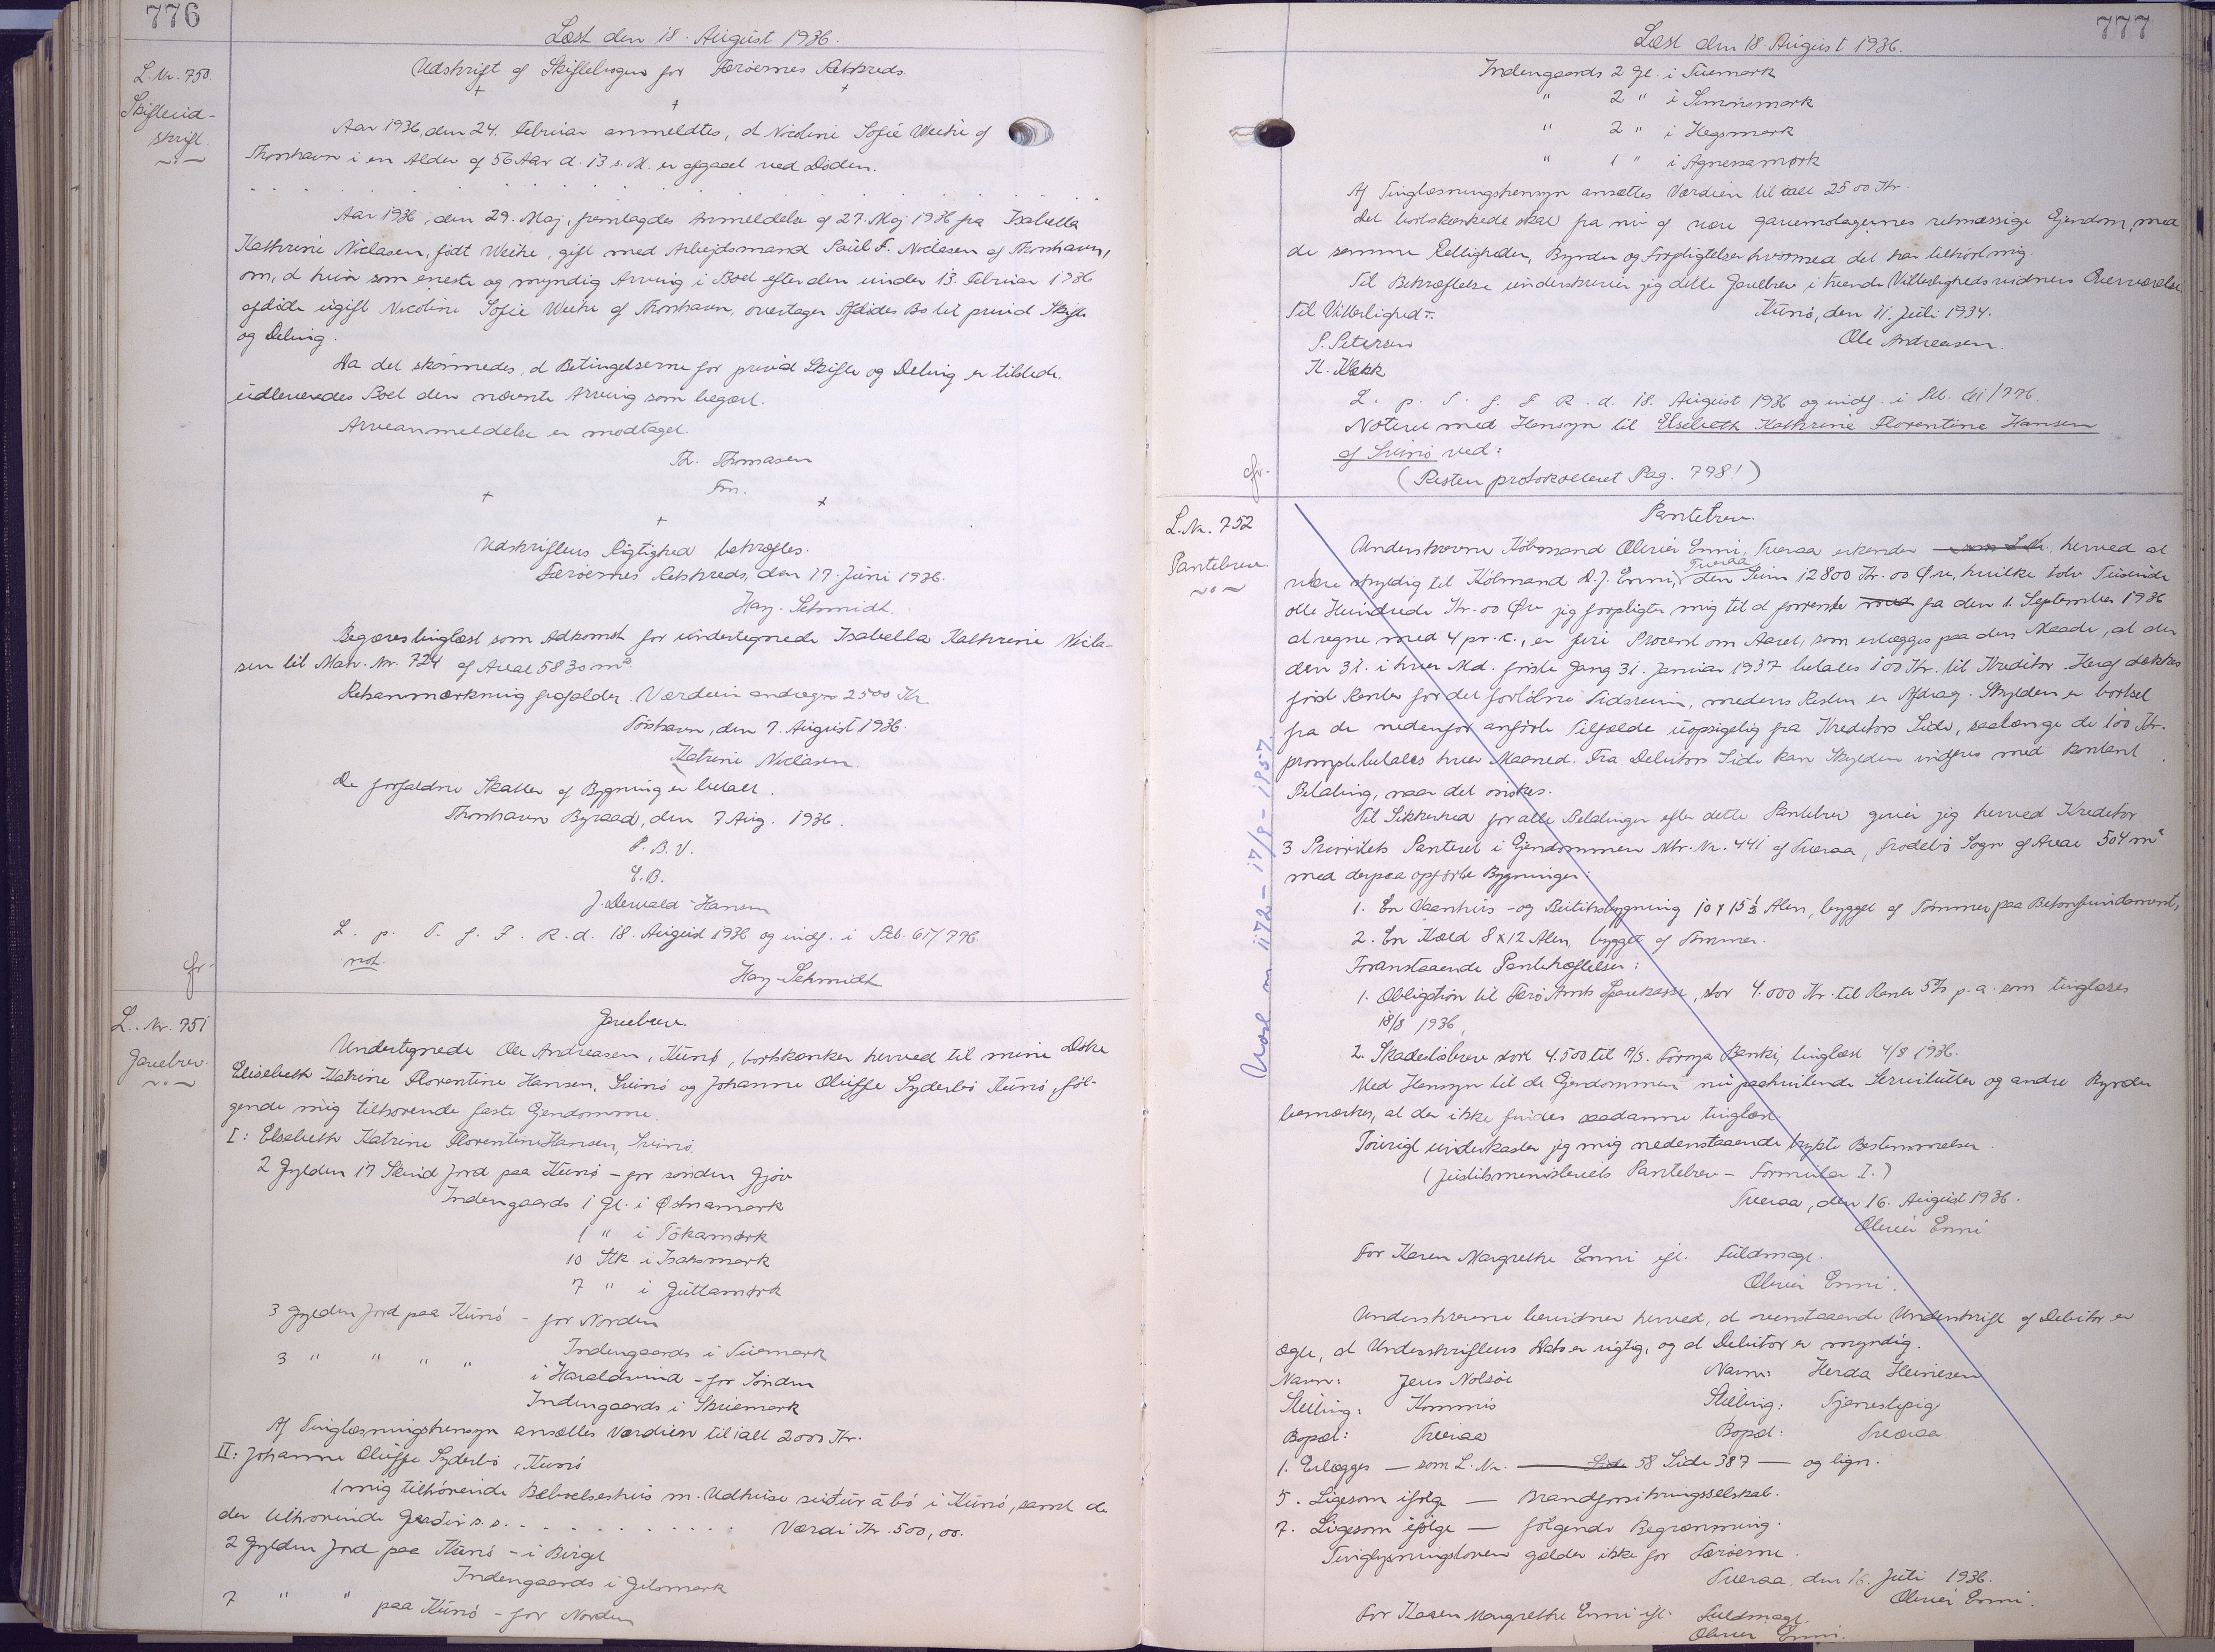 776
Læst den 18. August 1936.
L. Nr. 750.
Skifteud-
skrift.
Udskrift af Skiftebogen for Færøernes Retskreds.
Aar 1936, den 24. Februar anmeldtes, at Nicoline Sofie Weihe af
Thorshavn i en Alder af 56 Aar d. 13 s. M. er afgaaet ved Døden.
Aar 1936, den 29. Maj, fremlagdes Anmeldelse af 27. Maj 1936 fra Isabella
Kathrine Niclasen, født Weihe, gift med Arbejdsmand Poul F. Niclasen af Thorshavn,
om, at hun som eneste og myndig Arving i Boet efter den under 13. Februar 1936
afdøde ugift Nicoline Sofie Weihe af Thorshavn, overtager Afdødes Bo til privat Skifte
og Deling.
Da det skønnedes, at Betingelserne for privat Skifte og Deling er tilstede,
udleveredes Boet den nævnte Arving som begært.
Arveanmeldelse er modtaget.
Th. Thomasen
Fm.
Udskriftens Rigtighed bekræftes.
Færøernes Retskreds, den 17. Juni 1936.
Hay-Schmidt.
Begæres tinglæst som Adkomst for undertegnede Isabella Kathrine Nicla-
sen til Matr. Nr. 724 af Areal 5830 m².
Retsanmærkning frafalder. Værdien andrager 2500 Kr.
Tórshavn, den 7. August 1936.
Katrine Niclasen.
De forfaldne Skatter af Bygning er betalt.
Thorshavn Byraad, den 7 Aug. 1936.
P. B. V.
E. B.
J. Dewald-Hansen
L. p. T. f. F. R. d. 18. August 1936 og indf. i Skb. 61/776.
not.
Hay-Schmidt
cfr.
L. Nr. 751
Gavebrev.
Gavebrev.
Undertegnede Ole Andreasen, Kunø, bortskænker herved til mine Døtre
Elisebeth Katrine Florentine Hansen, Svinø og Johanne Oluffe Syderbø Kunø, føl-
gende mig tilhørende faste Ejendomme.
I: Elsebeth Katrine Florentine Hansen, Svinø.
2 Gylden 17 Skind Jord paa Kunø - for sønden Gjóv
Indengaards 1 Gl. i Østnamørk
1 " i Tókamørk
10 Stk. i Isaksmørk
7 " i Guttamørk
3 Gylden Jord paa Kunø - for Norden
Indengaards i Tuemørk
3 " " " "
i Haraldsund - for Sønden
Indengaards i Skuemørk
Af Tinglæsningshensyn ansættes Værdien til ialt 2000 Kr.
II: Johanne Oluffe Syderbø, Kunø
1 mig tilhørende Beboelseshus m. Udhuse suður á bø i Kunø, samt de
der tilhørende Grøðir s. s. . . . . . . . . . Værdi Kr. 500,00.
2 Gylden Jord paa Kunø - i Birget
Indengaards i Gilsmørk
7 " " paa Kunø - for Norden
777
Læst den 18 August 1936.
Indengaards 2 Gl. i Tuemørk
" 2 " i Simunsmørk
" 2 " i Hegsmørk
" 1 " i Agnesamørk
Af Tinglæsningshensyn ansættes Værdien til ialt 2500 Kr.
Det bortskænkede skal fra nu af være gavemodtagernes retmæssige Ejendom, med
de samme Rettigheder, Byrder og Forpligtelser hvormed det har tilhørt mig.
Til Bekræftelse underskriver jeg dette Gavebrev i tvende Vitterlighedsvidners Overværelse.
Til Vitterlighed:
Kunø, den 11. Juli 1934.
P. Petersen
Ole Andreasen.
K. Klakk
L. p. T. f. F. R. d. 18. August 1936 og indf. i Skb. 61/776.
Noteret med Hensyn til Elsebeth Kathrine Florentine Hansen
af Svinø ved:
(Resten protokolleret Pag. 798!)
cfr.
L. Nr. 752
Pantebrev.
Pantebrev.
Underskrevne Købmand Oliver Enni, Tveraa erkender som L. Nr. herved at
være skyldig til Købmand D. J. Enni, Tveraa den Sum 12800 Kr. 00 Øre, hvilke tolv Tusinde
otte Hundrede Kr. 00 Øre jeg forpligter mig til at forrente med fra den 1. September 1936
at regne med 4 pr. c., er fire Procent om Aaret, som erlægges paa den Maade, at der
den 31. i hver Md. første Gang 31. Januar 1937 betales 100 Kr. til Kreditor. Heraf dækkes
først Renter for det forløbne Tidsrum, medens Resten er Afdrag. Skylden er bortset
fra de nedenfor anførte Tilfælde uopsigelig fra Kreditors Side, saalænge de 100 Kr.
prompte betales hver Maaned. Fra Debitors Side kan Skylden indfries med kontant
Betaling, naar det ønskes.
Til Sikkerhed for alle Betalinger efter dette Pantebrev giver jeg herved Kreditor
3 Prioritets Panteret i Ejendommen Mtr. Nr. 441 af Tveraa, Frodebø Sogn af Areal 504 m²
med derpaa opførte Bygninger:
1. En Vaanhus- og Butiksbygning 10 x 15½ Alen, bygget af Tømmer paa Betonfundament,
2. En Kæld 8 x 12 Alen, bygget af Tømmer.
Foranstaaende Pantehæftelser:
1. Obligation til Færø Amts Sparekasse, stor 4.000 Kr. til Rente 5% p. a. som tinglæses
18/8 1936,
2. Skadesløsbrev stort 4.500 til A/S. Føroya Banki, tinglæst 4/8 1936.
Med Hensyn til de Ejendommen nu paahvilende Servitutter og andre Byrder
bemærkes, at der ikke findes saadanne tinglæst.
Iøvrigt underkaster jeg mig nedenstaaende trykte Bestemmelser.
(Justitsministeriets Pantebrev - Formular I.)
Tveraa, den 16. August 1936.
Oliver Enni
For Karen Margrethe Enni ifl. Fuldmagt.
Oliver Enni.
Underskrevne bevidner herved, at ovenstaaende Underskrift af Debitor er
ægte, at Underskriftens Dato er rigtig, og at Debitor er myndig.
Navn: Jens Nolsøe
Navn: Herda Heinesen
Stilling: Kommis
Stilling: Tjenestepige
Bopæl: Tveraa
Bopæl: Tveraa
1. Erlægges — som L. Nr. — Side 58 Side 387 — og lign.
5. Ligesom ifølge — Brandforsikringsselskab.
7. Ligesom ifølge — følgende Begrænsning.
Tinglysningsloven gælder ikke for Færøerne.
Tveraa, den 16. Juli 1936.
Oliver Enni.
For Karen Margrethe Enni ifl. Fuldmagt.
Oliver Enni.
1172 - 17/9 - 1957.